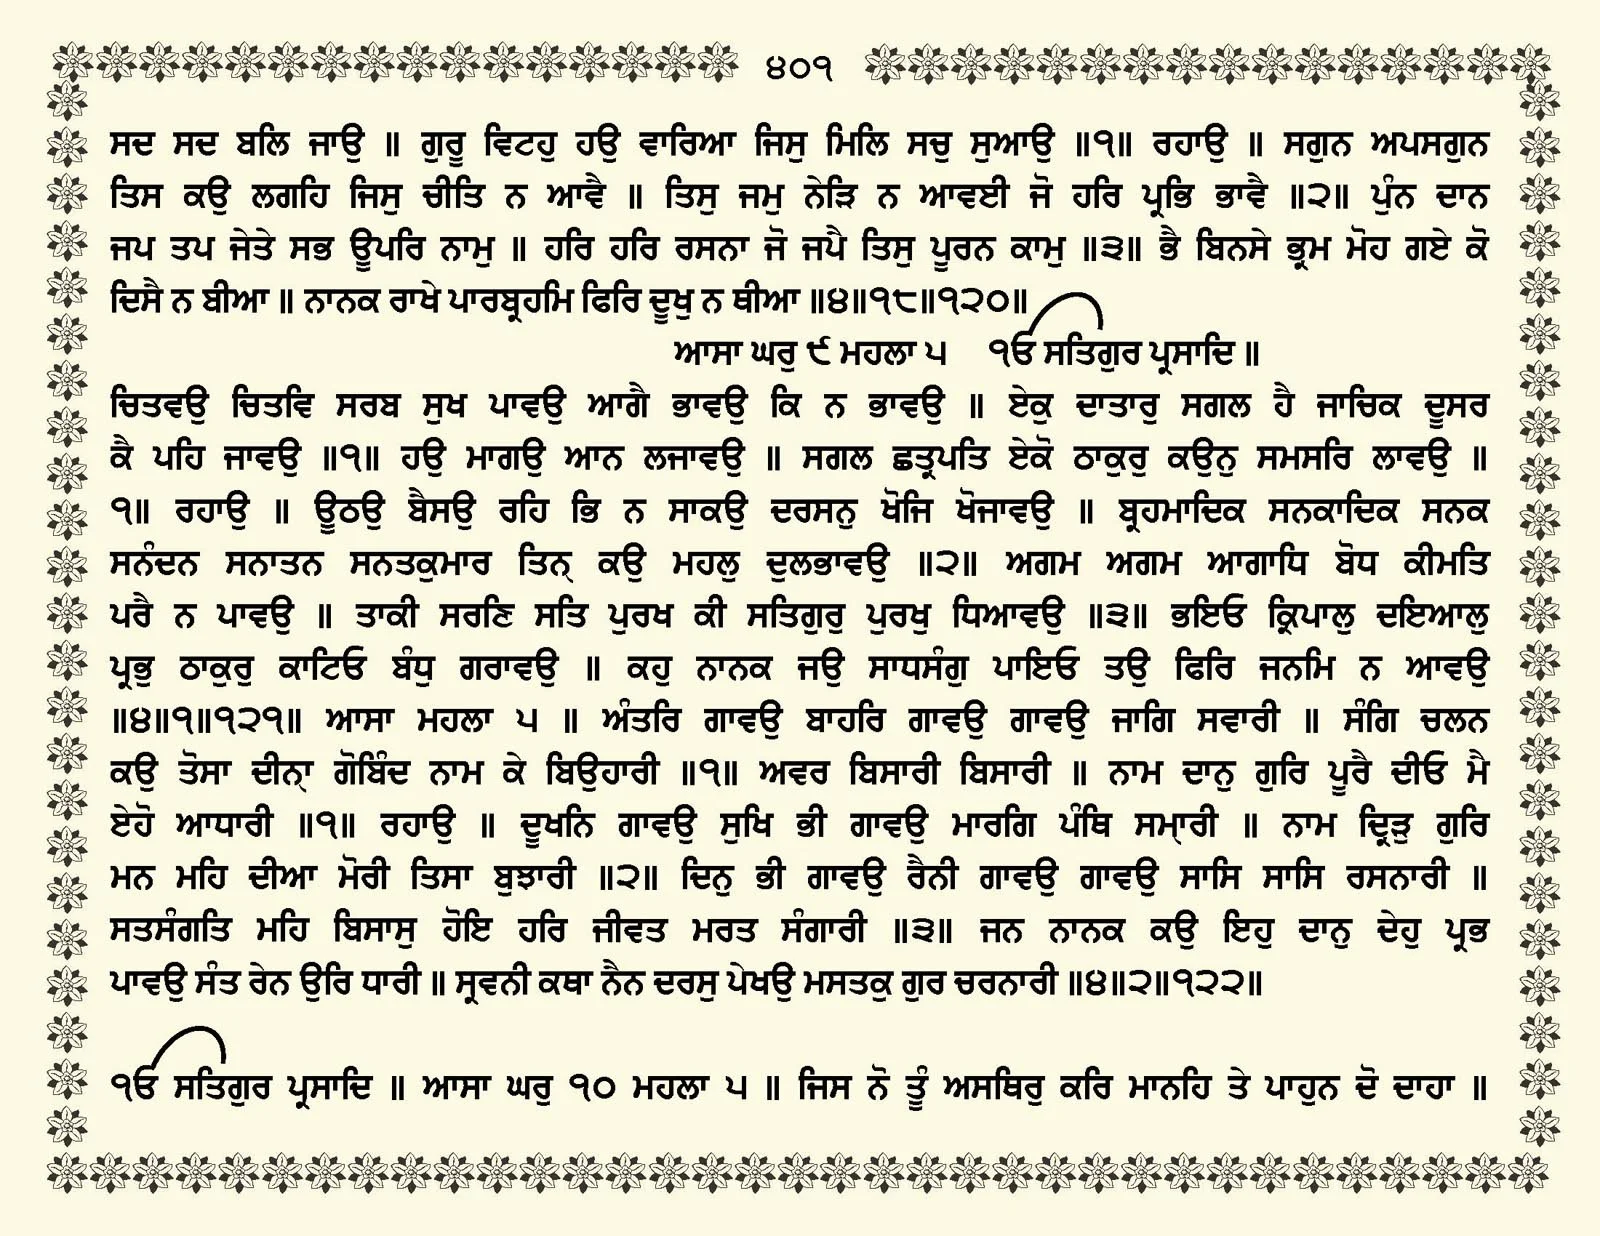 ੪੦੧
ਸਦ ਸਦ ਬਲਿ ਜਾਉ ॥ ਗੁਰੂ ਵਿਟਹੁ ਹਉ ਵਾਰਿਆ ਜਿਸੁ ਮਿਲਿ ਸਚੁ ਸੁਆਉ ॥੧॥ ਰਹਾਉ ॥ ਸਗੁਨ ਅਪਸਗੁਨ
ਤਿਸ ਕਉ ਲਗਹਿ ਜਿਸੁ ਚੀਤਿ ਨ ਆਵੈ ॥ ਤਿਸੁ ਜਮੁ ਨੇੜਿ ਨ ਆਵਈ ਜੋ ਹਰਿ ਪ੍ਰਭਿ ਭਾਵੈ ॥੨॥ ਪੁੰਨ ਦਾਨ
ਜਪ ਤਪ ਜੇਤੇ ਸਭ ਊਪਰਿ ਨਾਮੁ ॥ ਹਰਿ ਹਰਿ ਰਸਨਾ ਜੋ ਜਪੈ ਤਿਸੁ ਪੂਰਨ ਕਾਮੁ ॥੩॥ ਭੈ ਬਿਨਸੇ ਭ੍ਰਮ ਮੋਹ ਗਏ ਕੋ
ਦਿਸੈ ਨ ਬੀਆ ॥ ਨਾਨਕ ਰਾਖੇ ਪਾਰਬ੍ਰਹਮਿ ਫਿਰਿ ਦੂਖੁ ਨ ਥੀਆ ॥੪॥੧੮॥੧੨੦॥
ਆਸਾ ਘਰੁ ੯ ਮਹਲਾ ੫ ੴ ਸਤਿਗੁਰ ਪ੍ਰਸਾਦਿ ॥
ਚਿਤਵਉ ਚਿਤਵਿ ਸਰਬ ਸੁਖ ਪਾਵਉ ਆਗੈ ਭਾਵਉ ਕਿ ਨ ਭਾਵਉ ॥ ਏਕੁ ਦਾਤਾਰੁ ਸਗਲ ਹੈ ਜਾਚਿਕ ਦੂਸਰ
ਕੈ ਪਹਿ ਜਾਵਉ ॥੧॥ ਹਉ ਮਾਗਉ ਆਨ ਲਜਾਵਉ ॥ ਸਗਲ ਛਤ੍ਰਪਤਿ ਏਕੋ ਠਾਕੁਰੁ ਕਉਨੁ ਸਮਸਰਿ ਲਾਵਉ ॥
੧॥ ਰਹਾਉ ॥ ਊਠਉ ਬੈਸਉ ਰਹਿ ਭਿ ਨ ਸਾਕਉ ਦਰਸਨੁ ਖੋਜਿ ਖੋਜਾਵਉ ॥ ਬ੍ਰਹਮਾਦਿਕ ਸਨਕਾਦਿਕ ਸਨਕ
ਸਨੰਦਨ ਸਨਾਤਨ ਸਨਤਕੁਮਾਰ ਤਿਨ੍ ਕਉ ਮਹਲੁ ਦੁਲਭਾਵਉ ॥੨॥ ਅਗਮ ਅਗਮ ਆਗਾਧਿ ਬੋਧ ਕੀਮਤਿ
ਪਰੈ ਨ ਪਾਵਉ ॥ ਤਾਕੀ ਸਰਣਿ ਸਤਿ ਪੁਰਖ ਕੀ ਸਤਿਗੁਰੁ ਪੁਰਖੁ ਧਿਆਵਉ ॥੩॥ ਭਇਓ ਕ੍ਰਿਪਾਲੁ ਦਇਆਲੁ
ਪ੍ਰਭੁ ਠਾਕੁਰੁ ਕਾਟਿਓ ਬੰਧੁ ਗਰਾਵਉ ॥ ਕਹੁ ਨਾਨਕ ਜਉ ਸਾਧਸੰਗੁ ਪਾਇਓ ਤਉ ਫਿਰਿ ਜਨਮਿ ਨ ਆਵਉ
॥੪॥੧॥੧੨੧॥ ਆਸਾ ਮਹਲਾ ੫ ॥ ਅੰਤਰਿ ਗਾਵਉ ਬਾਹਰਿ ਗਾਵਉ ਗਾਵਉ ਜਾਗਿ ਸਵਾਰੀ ॥ ਸੰਗਿ ਚਲਨ
ਕਉ ਤੋਸਾ ਦੀਨਾ੍ ਗੋਬਿੰਦ ਨਾਮ ਕੇ ਬਿਉਹਾਰੀ ॥੧॥ ਅਵਰ ਬਿਸਾਰੀ ਬਿਸਾਰੀ ॥ ਨਾਮ ਦਾਨੁ ਗੁਰਿ ਪੂਰੈ ਦੀਓ ਮੈ
ਏਹੋ ਆਧਾਰੀ ॥੧॥ ਰਹਾਉ ॥ ਦੂਖਨਿ ਗਾਵਉ ਸੁਖਿ ਭੀ ਗਾਵਉ ਮਾਰਗਿ ਪੰਥਿ ਸਮਾ੍ਰੀ ॥ ਨਾਮ ਦ੍ਰਿੜੁ ਗੁਰਿ
ਮਨ ਮਹਿ ਦੀਆ ਮੋਰੀ ਤਿਸਾ ਬੁਝਾਰੀ ॥੨॥ ਦਿਨੁ ਭੀ ਗਾਵਉ ਰੈਨੀ ਗਾਵਉ ਗਾਵਉ ਸਾਸਿ ਸਾਸਿ ਰਸਨਾਰੀ ॥
ਸਤਸੰਗਤਿ ਮਹਿ ਬਿਸਾਸੁ ਹੋਇ ਹਰਿ ਜੀਵਤ ਮਰਤ ਸੰਗਾਰੀ ॥੩॥ ਜਨ ਨਾਨਕ ਕਉ ਇਹੁ ਦਾਨੁ ਦੇਹੁ ਪ੍ਰਭ
ਪਾਵਉ ਸੰਤ ਰੇਨ ਉਰਿ ਧਾਰੀ ॥ ਸ੍ਰਵਨੀ ਕਥਾ ਨੈਨ ਦਰਸੁ ਪੇਖਉ ਮਸਤਕੁ ਗੁਰ ਚਰਨਾਰੀ ॥੪॥੨॥੧੨੨॥
ੴ ਸਤਿਗੁਰ ਪ੍ਰਸਾਦਿ ॥ ਆਸਾ ਘਰੁ ੧੦ ਮਹਲਾ ੫ ॥ ਜਿਸ ਨੋ ਤੂੰ ਅਸਥਿਰੁ ਕਰਿ ਮਾਨਹਿ ਤੇ ਪਾਹੁਨ ਦੋ ਦਾਹਾ ॥